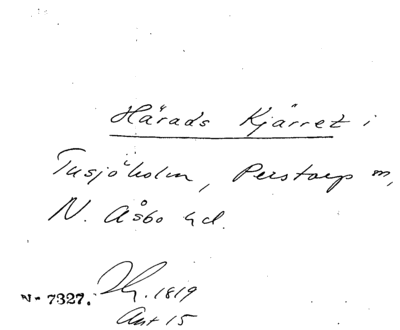 Härads Kjärret i
Tusjöholm, Perstorp m,
N. Åsbo hd.
N- 7327.
1819
Art 15